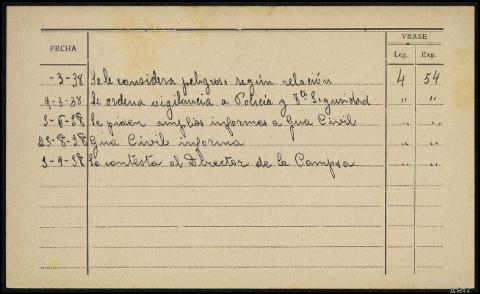 FECHA
VEASE
Leg. Exp.
-3-38 Se le considera peligroso según relación 4 54
9-3-38 Se ordena vigilancia a Policía y Seguridad " "
3-6-38 Se piden amplios informes a Gua Civil " "
23-8-38 Gua Civil informa " "
3-9-38 Se contesta al Director de la Campsa " "